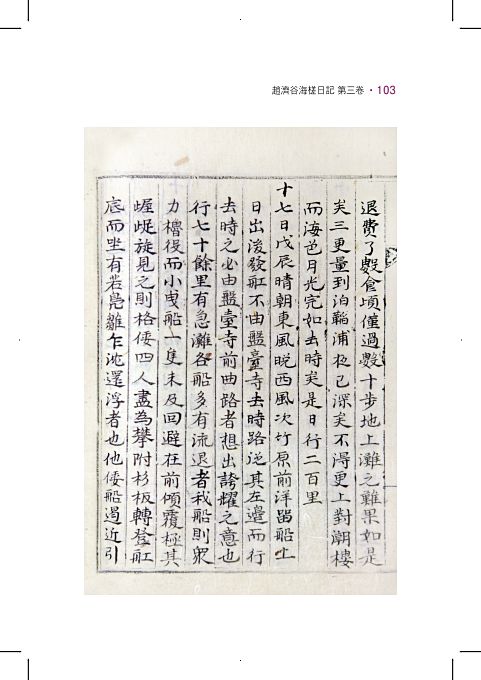 趙濟谷海槎日記 第三卷 · 103
退費了數食頃僅過數十步地上灘之難果如是
矣三更量到泊韜浦夜已深矣不得更上對潮樓
而海色月光完如去時矣是日行二百里
十七日戊辰晴朝東風晩西風次竹原前洋留船上
日出後發舡不由盤臺寺去時路從其左邊而行
去時之必由盤臺寺前曲路者想出誇耀之意也
行七十餘里有急灘各船多有流退者我船則眾
力櫓役而小曳船一隻未及回避在前傾覆極其
崐㞳旋見之則格倭四人盡為攀附杉板轉登舡
底而坐有若鳧雛乍沈還浮者也他倭船遏近引